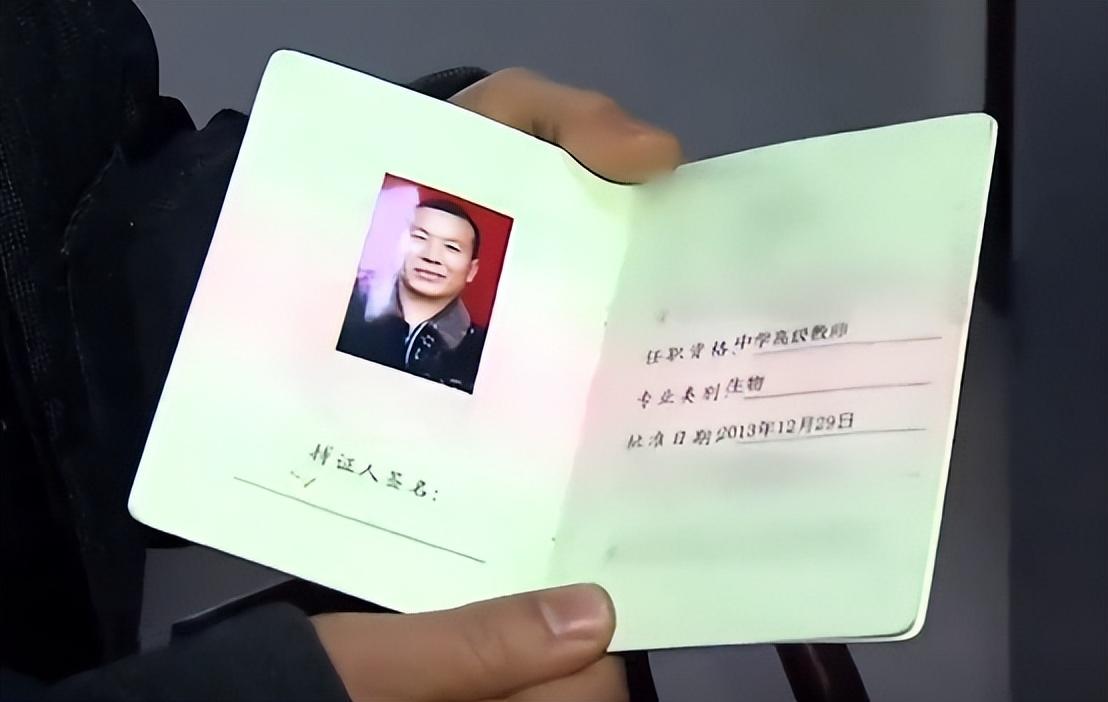 持证人签名:
任职资格:中学高级教师
专业类别:生物
批准日期:2013年12月29日